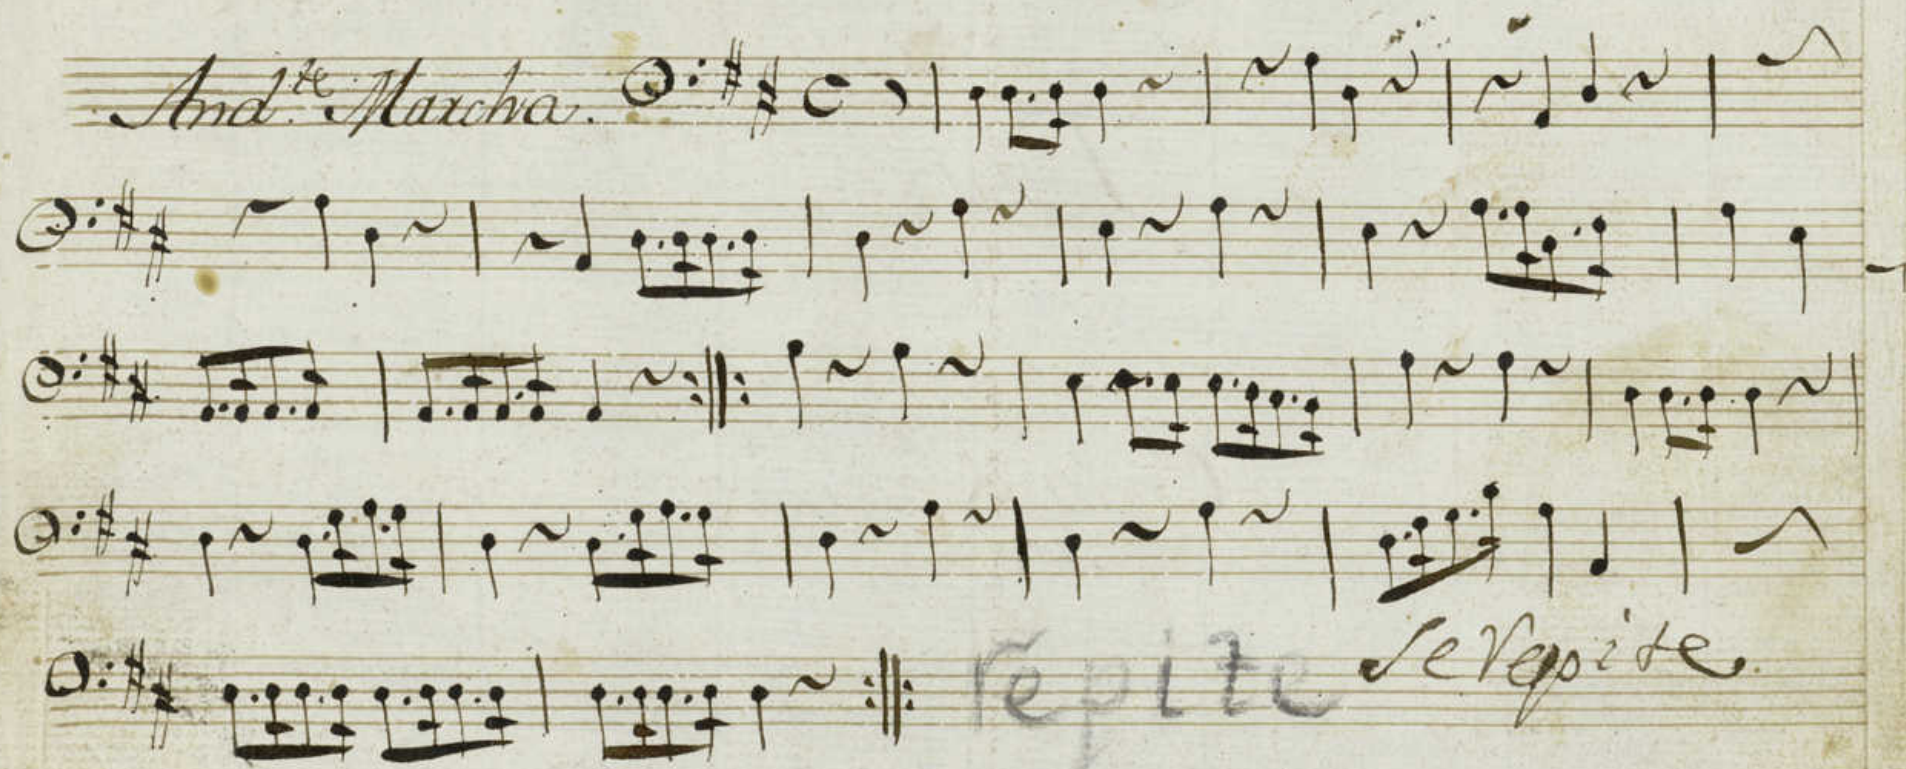 And.te Marcha.
repite Se repite